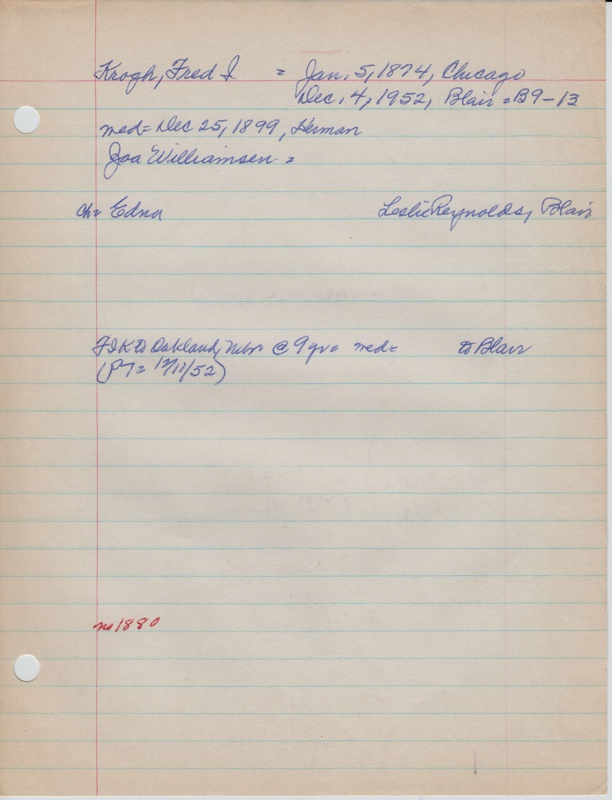 Krogh, Fred I = Jan. 5, 1874, Chicago
Dec. 4, 1952, Blair = B9-13
med = Dec 25, 1899, Herman
Williamsen =
ch = Edna Leslie Reynolds, Blair
FIK to Oakland, Nebr @ 9 yrs med = to Blair
(PT = 12/11/52)
no 1880